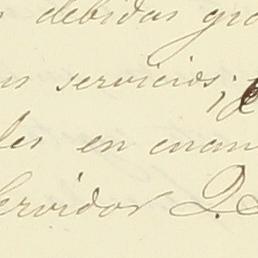 debidas gra
servicios; y
les en cuan
Servidor Q.S